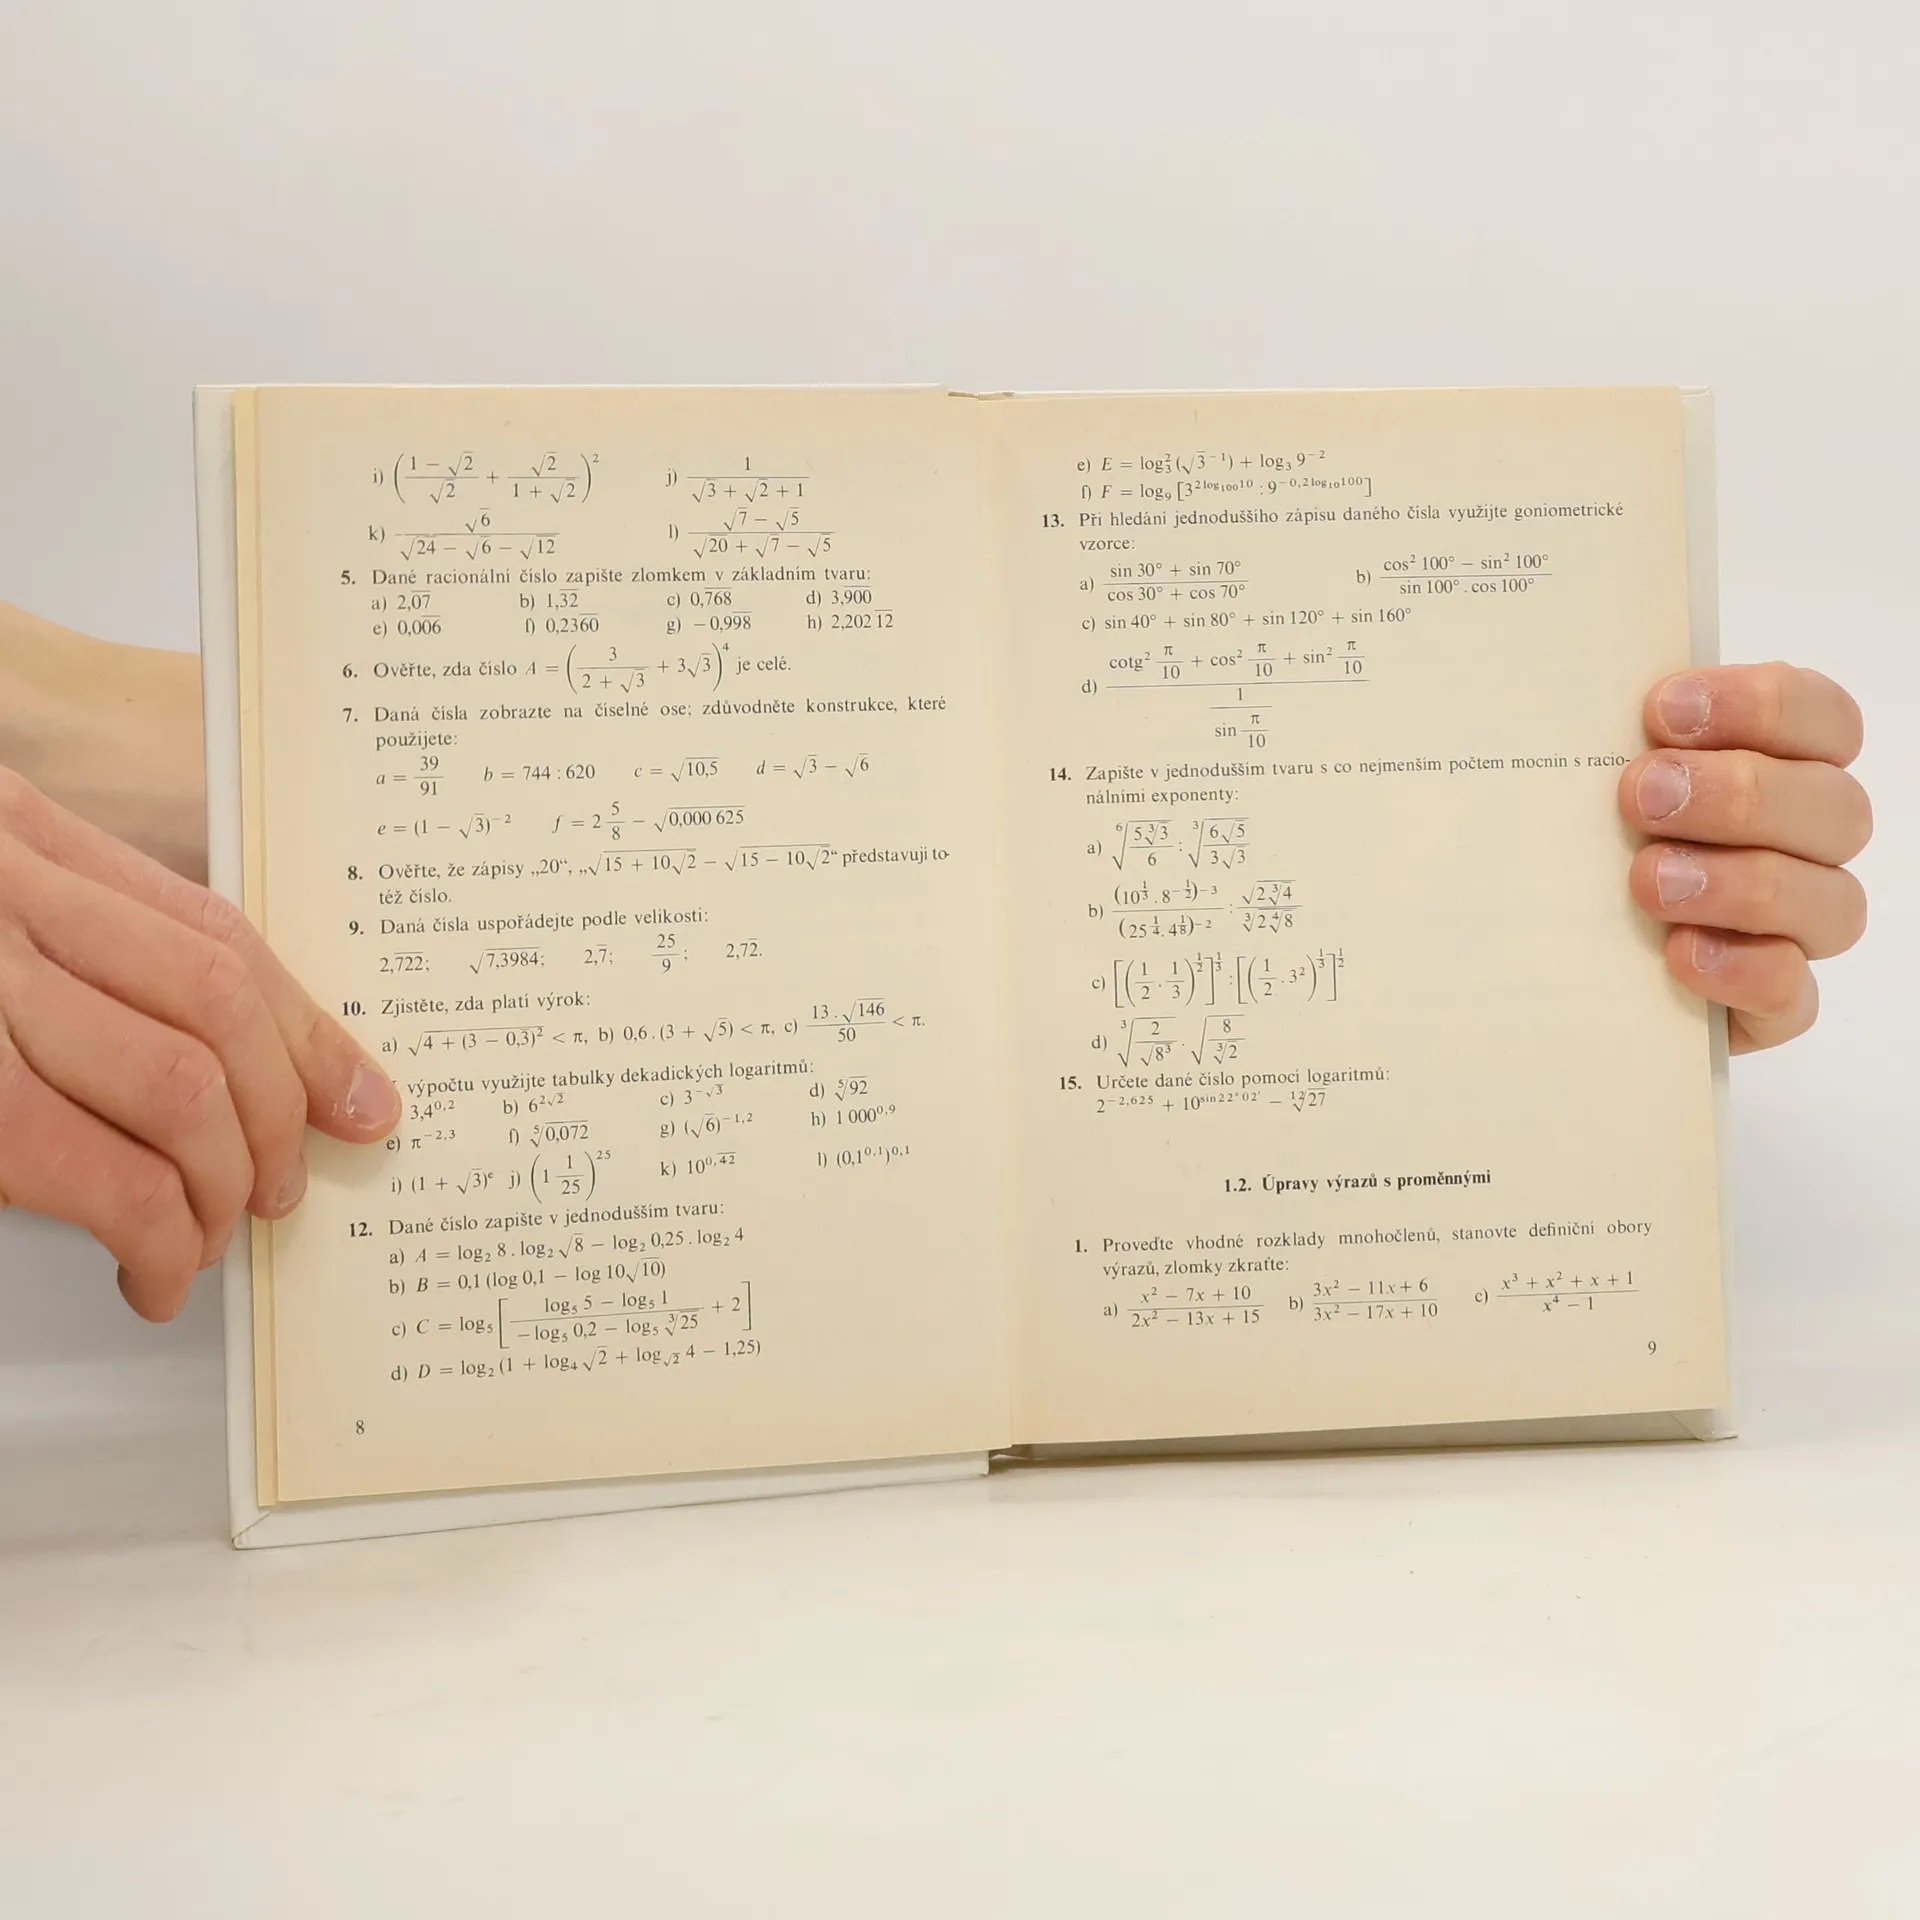 i) ((1 − √2)/√2 + √2/(1 + √2))² j) 1/(√3 + √2 + 1)
k) √6/(√24 − √6 − √12) l) (√7 − √5)/(√20 + √7 − √5)
5. Dané racionální číslo zapište zlomkem v základním tvaru:
a) 2,0̅7̅ b) 1,3̅2̅ c) 0,7̅6̅8̅ d) 3,9̅0̅0̅
e) 0,0̅0̅6̅ f) 0,236̅0̅ g) −0,9̅9̅8̅ h) 2,202 1̅2̅
6. Ověřte, zda číslo A = (3/(2 + √3) + 3√3)⁴ je celé.
7. Daná čísla zobrazte na číselné ose; zdůvodněte konstrukce, které
použijete:
a = 39/91 b = 744 : 620 c = √10,5 d = √3 − √6
e = (1 − √3)⁻² f = 2 5/8 − √0,000 625
8. Ověřte, že zápisy „20“, „√(15 + 10√2) − √(15 − 10√2)“ představují to-
též číslo.
9. Daná čísla uspořádejte podle velikosti:
2,7̅2̅2̅; √7,3984; 2,7̅; 25/9; 2,72̅.
10. Zjistěte, zda platí výrok:
a) √(4 + (3 − 0,3̅)²) < π, b) 0,6 . (3 + √5) < π, c) (13 . √146)/50 < π.
výpočtu využijte tabulky dekadických logaritmů:
3,4^0,2 b) 6^(2√2) c) 3^(−√3) d) ⁵√92
e) π^−2,3 f) ⁵√0,072 g) (√6)^−1,2 h) 1 000^0,9
i) (1 + √3)^e j) (1 1/25)^25 k) 10^0,4̅2̅ l) (0,1^0,1)^0,1
12. Dané číslo zapište v jednodušším tvaru:
a) A = log₂ 8 . log₂ √8 − log₂ 0,25 . log₂ 4
b) B = 0,1 (log 0,1 − log 10√10)
c) C = log₅ [(log₅ 5 − log₅ 1)/(− log₅ 0,2 − log₅ ³√25) + 2]
d) D = log₂ (1 + log₄ √2 + log_√2 4 − 1,25)
8
e) E = log₃² (√3⁻¹) + log₃ 9⁻²
f) F = log₉ [3^(2 log₁₀₀ 10) : 9^(−0,2 log₁₀ 100)]
13. Při hledání jednoduššího zápisu daného čísla využijte goniometrické
vzorce:
a) (sin 30° + sin 70°)/(cos 30° + cos 70°) b) (cos² 100° − sin² 100°)/(sin 100° . cos 100°)
c) sin 40° + sin 80° + sin 120° + sin 160°
d) (cotg² π/10 + cos² π/10 + sin² π/10)/(1/(sin π/10))
14. Zapište v jednodušším tvaru s co nejmenším počtem mocnin s racio-
nálními exponenty:
a) ⁶√(5 ³√3/6) : ³√(6√5/(3√3))
b) (10^(1/3) . 8^(−1/2))^−3/(25^(1/4) . 4^(1/8))^−2 : √(2 ³√4)/³√(2 ⁴√8)
c) [((1/2 . 1/3)^(1/2)]^(1/3) : [(1/2 . 3²)^(1/3)]^(1/2)
d) ³√(2/√8³) . √(8/³√2)
15. Určete dané číslo pomocí logaritmů:
2^−2,625 + 10^(sin 22°02′) − ¹²√27
1.2. Úpravy výrazů s proměnnými
1. Proveďte vhodné rozklady mnohočlenů, stanovte definiční obory
výrazů, zlomky zkraťte:
a) (x² − 7x + 10)/(2x² − 13x + 15) b) (3x² − 11x + 6)/(3x² − 17x + 10) c) (x³ + x² + x + 1)/(x⁴ − 1)
9